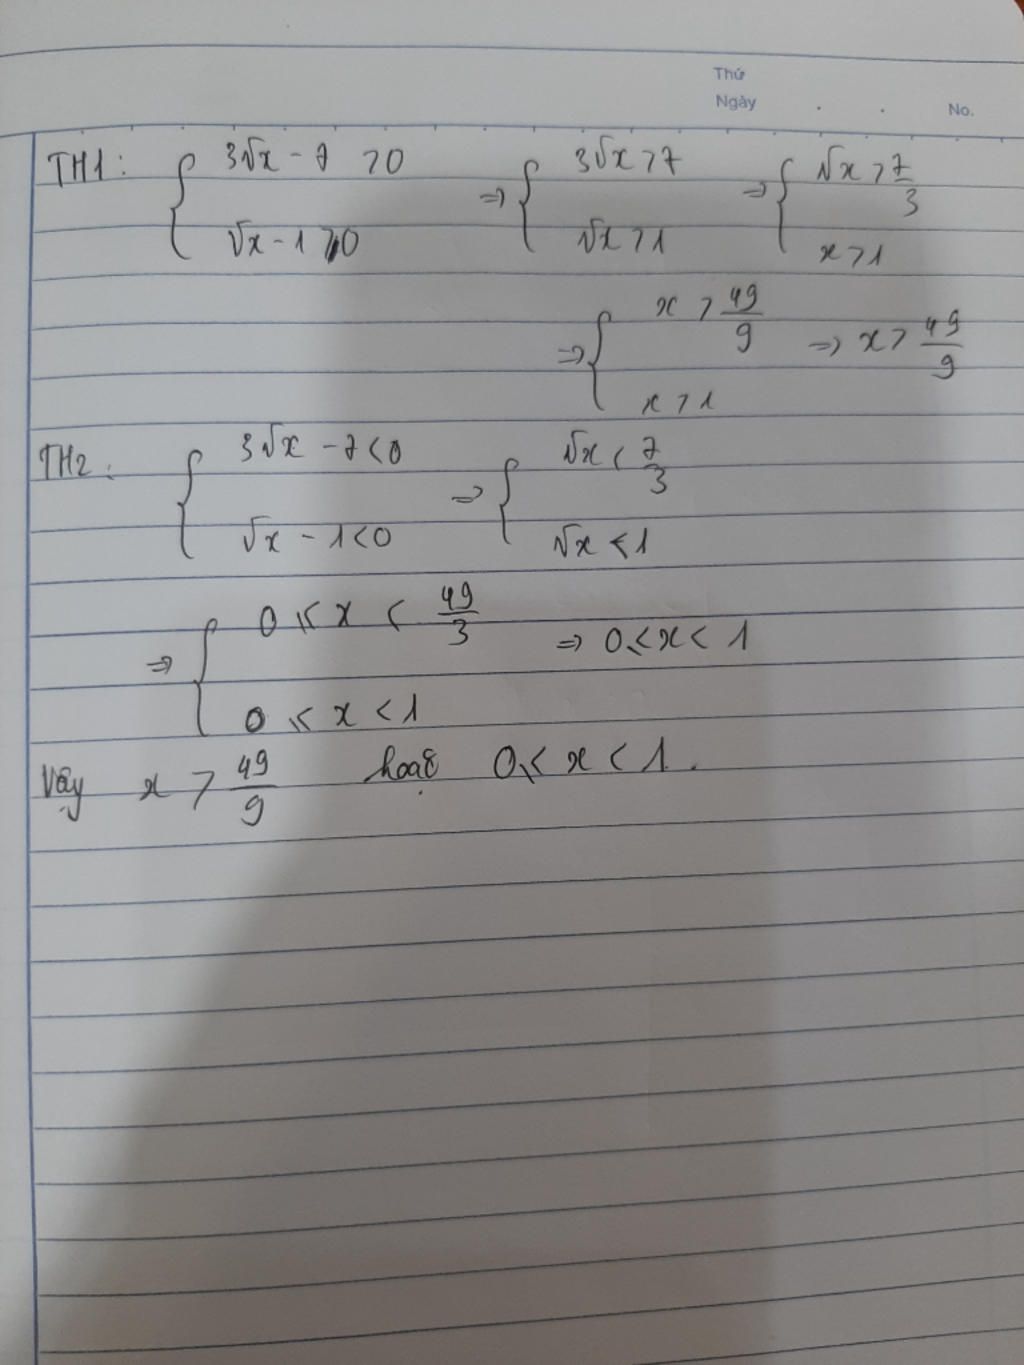 Thứ
Ngày . . No.
TH1: { 3√x - 7 > 0 ; √x - 1 > 0 => { 3√x > 7 ; √x > 1 => { √x > 7/3 ; x > 1
=> { x > 49/9 ; x > 1 => x > 49/9
TH2: { 3√x - 7 < 0 ; √x - 1 < 0 => { √x < 7/3 ; √x < 1
=> { 0 ≤ x < 49/3 ; 0 ≤ x < 1 => 0 ≤ x < 1
Vậy x > 49/9 hoặc 0 ≤ x < 1.